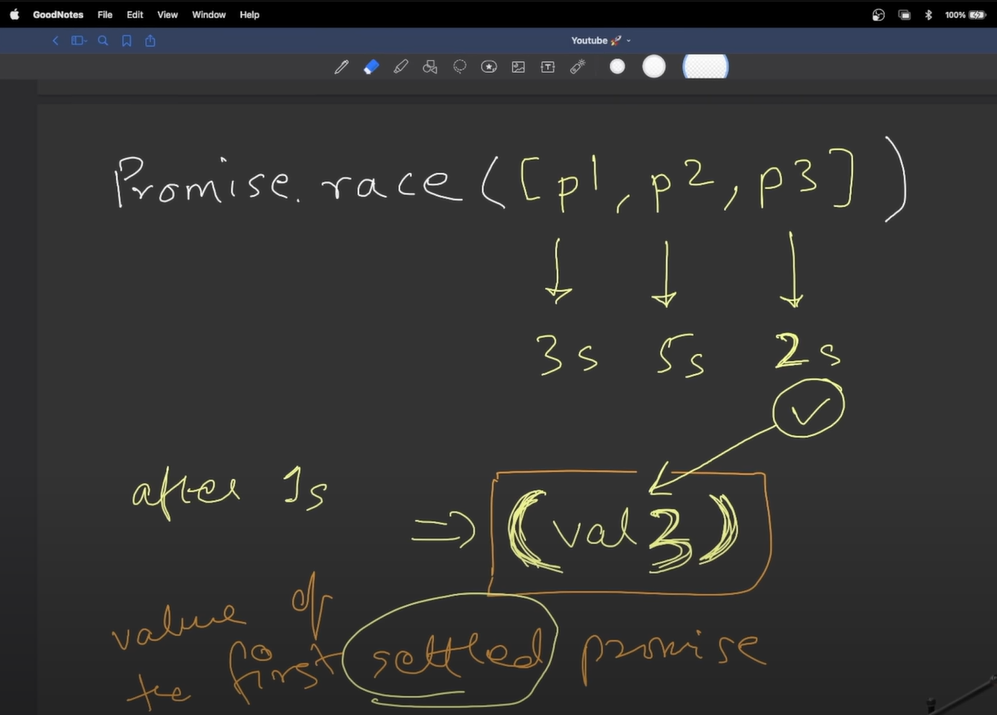 GoodNotes File Edit View Window Help 100%
Youtube 🚀
Promise.race([p1, p2, p3])
3s 5s 2s
after 1s
=> (val3)
value of
the first settled promise